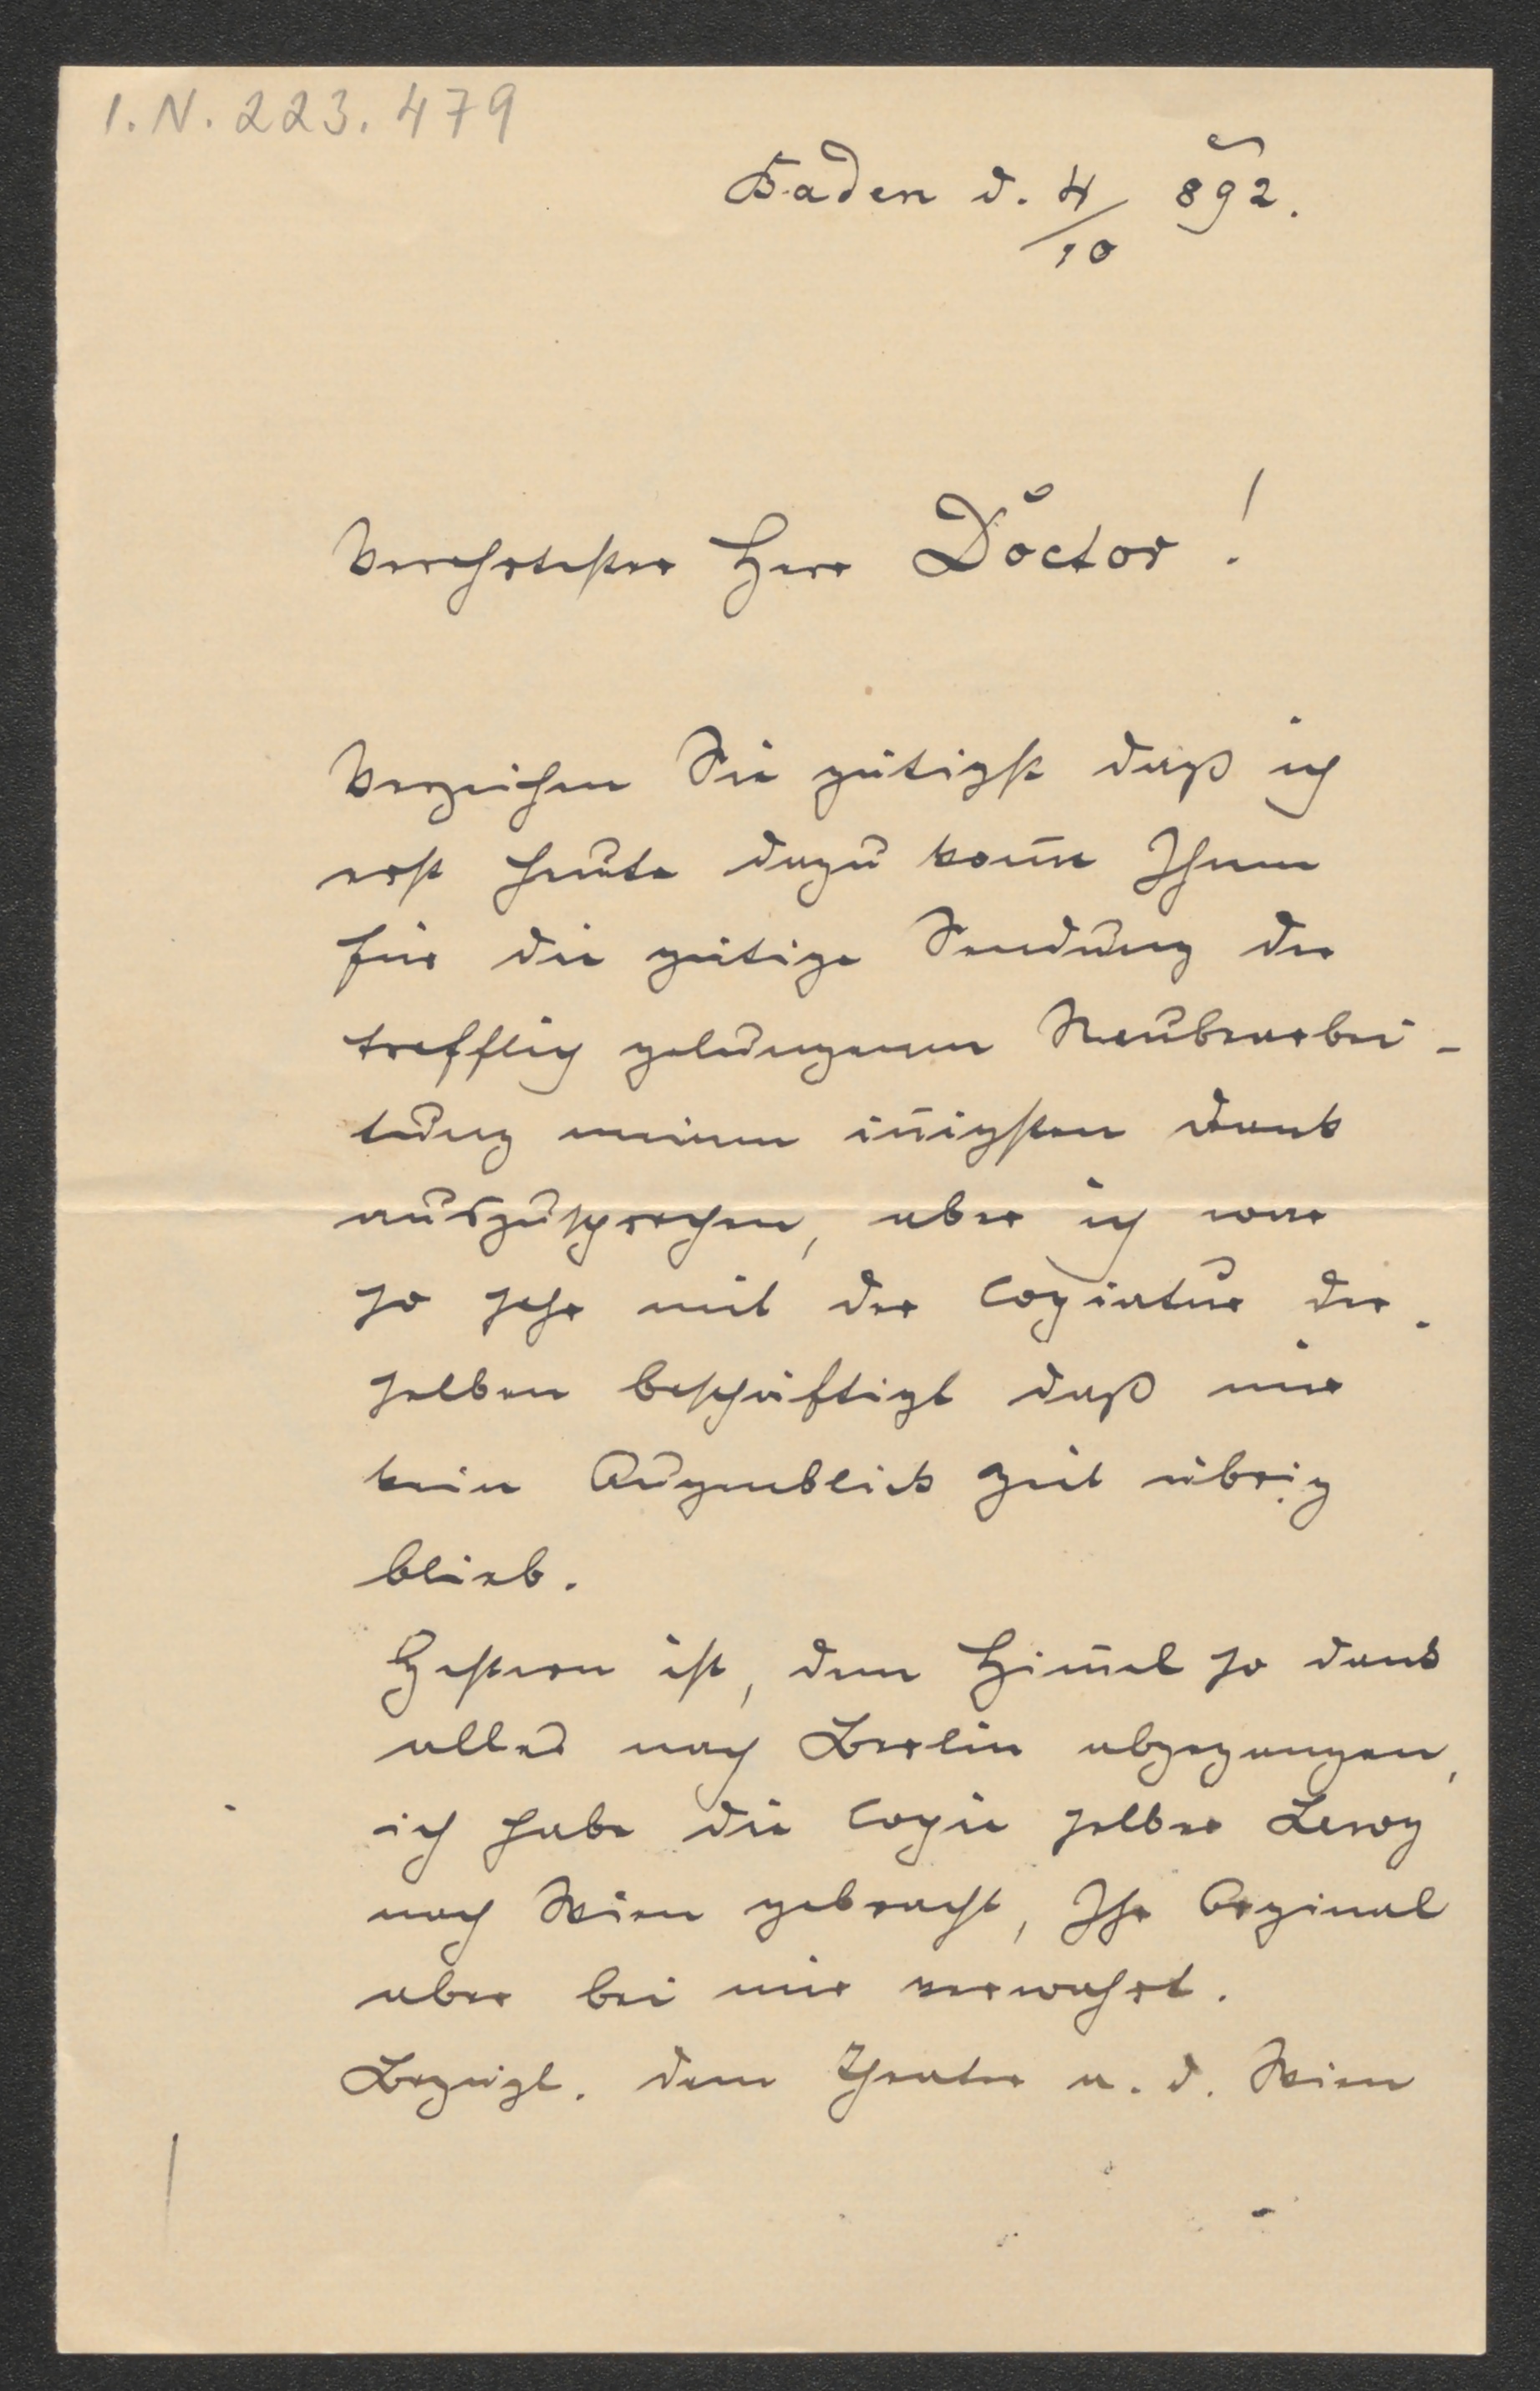 I.N. 223.479
Baden d. 4/10 892.
Verehrtester Herr Doctor!
Verzeihen Sie gütigst daß ich
erst heute dazu kom̄e Ihnen
für die gütige Sendung der
trefflich gelungenen Neubearbei-
tung meinen in̄igsten Dank
auszusprechen, aber ich war
so sehr mit der Copiatur der-
selben beschäftigt daß mir
kein Augenblick Zeit übrig
blieb.
Gestern ist, dem Him̄el so dank
alles nach Berlin abgegangen,
ich habe die Copie selber Leroy
nach Wien gebracht, Ihr Orginal
aber bei mir verwahrt.
Bezügl. dem Theater a. d. Wien